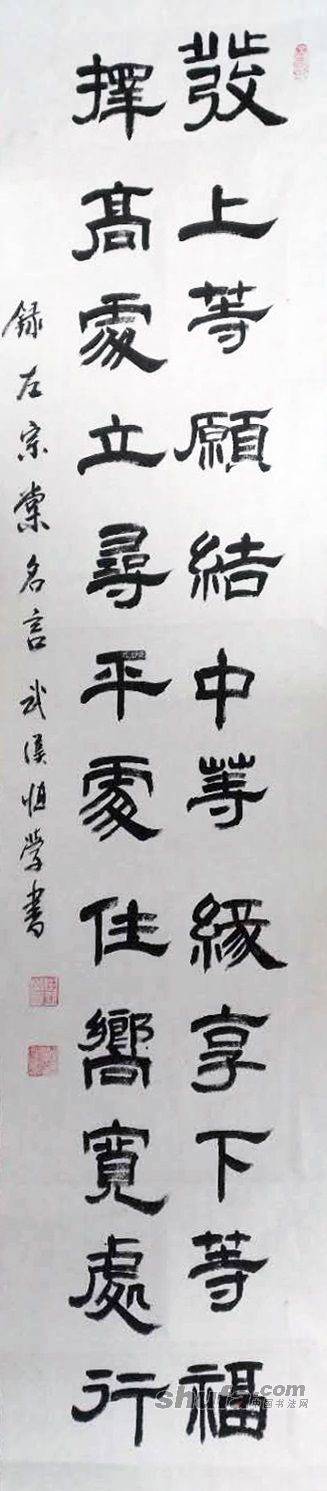 發上等願結中等緣享下等福
擇髙處立尋平處住嚮寬處行
録左宗棠名言武漢恒学書
shufa.com
中国书法网